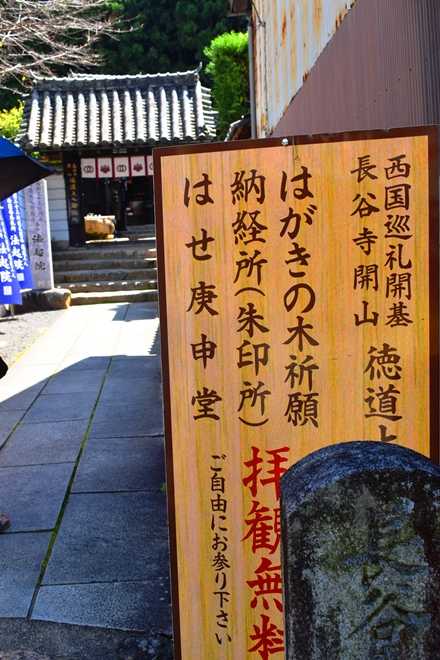 西国巡礼開基
長谷寺開山
徳道上
はがきの木祈願
納経所(朱印所)
はせ庚申堂
拝観無料
ご自由にお参り下さい
長谷
法起院
法起院